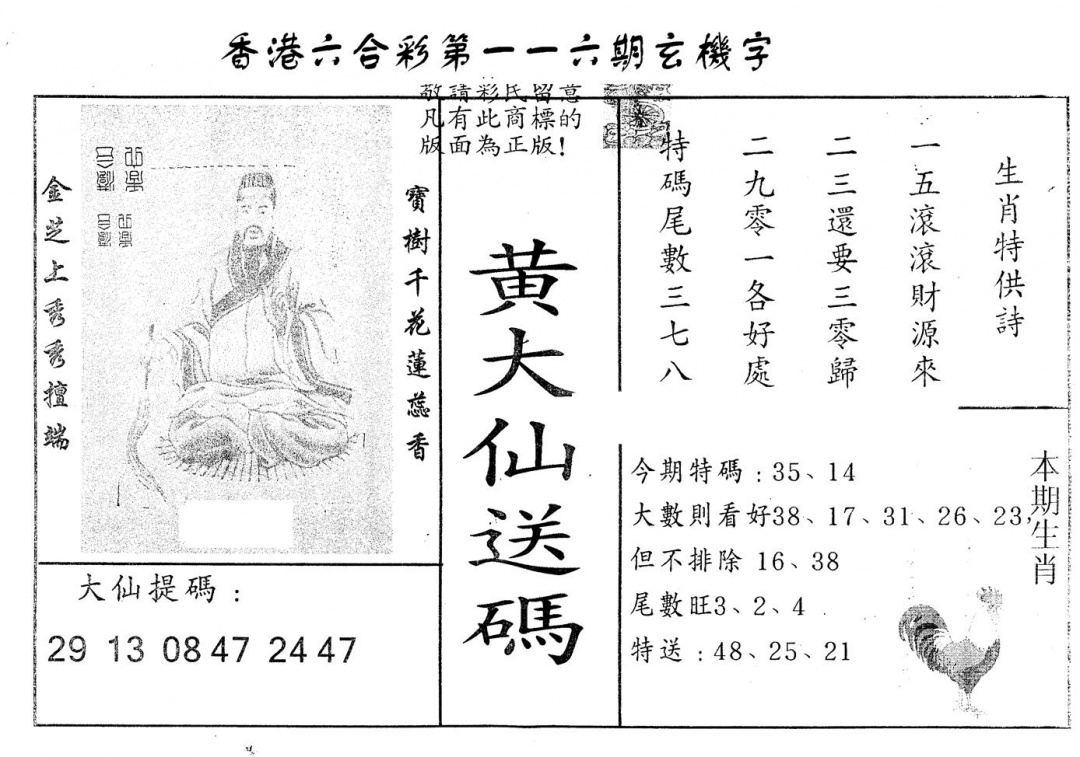 香港六合彩第一一六期玄機字
敬請彩民留意
凡有此商標的
版面為正版!
生肖特供詩
一五滾滾財源來
二三還要三零歸
二九零一各好處
特碼尾數三七八
黃大仙送碼
寶樹千花蓮蕊香
金芝上秀秀擅端
大仙提碼：
29 13 08 47 24 47
今期特碼：35、14
大數則看好38、17、31、26、23，
但不排除 16、38
尾數旺3、2、4
特送：48、25、21
本期生肖